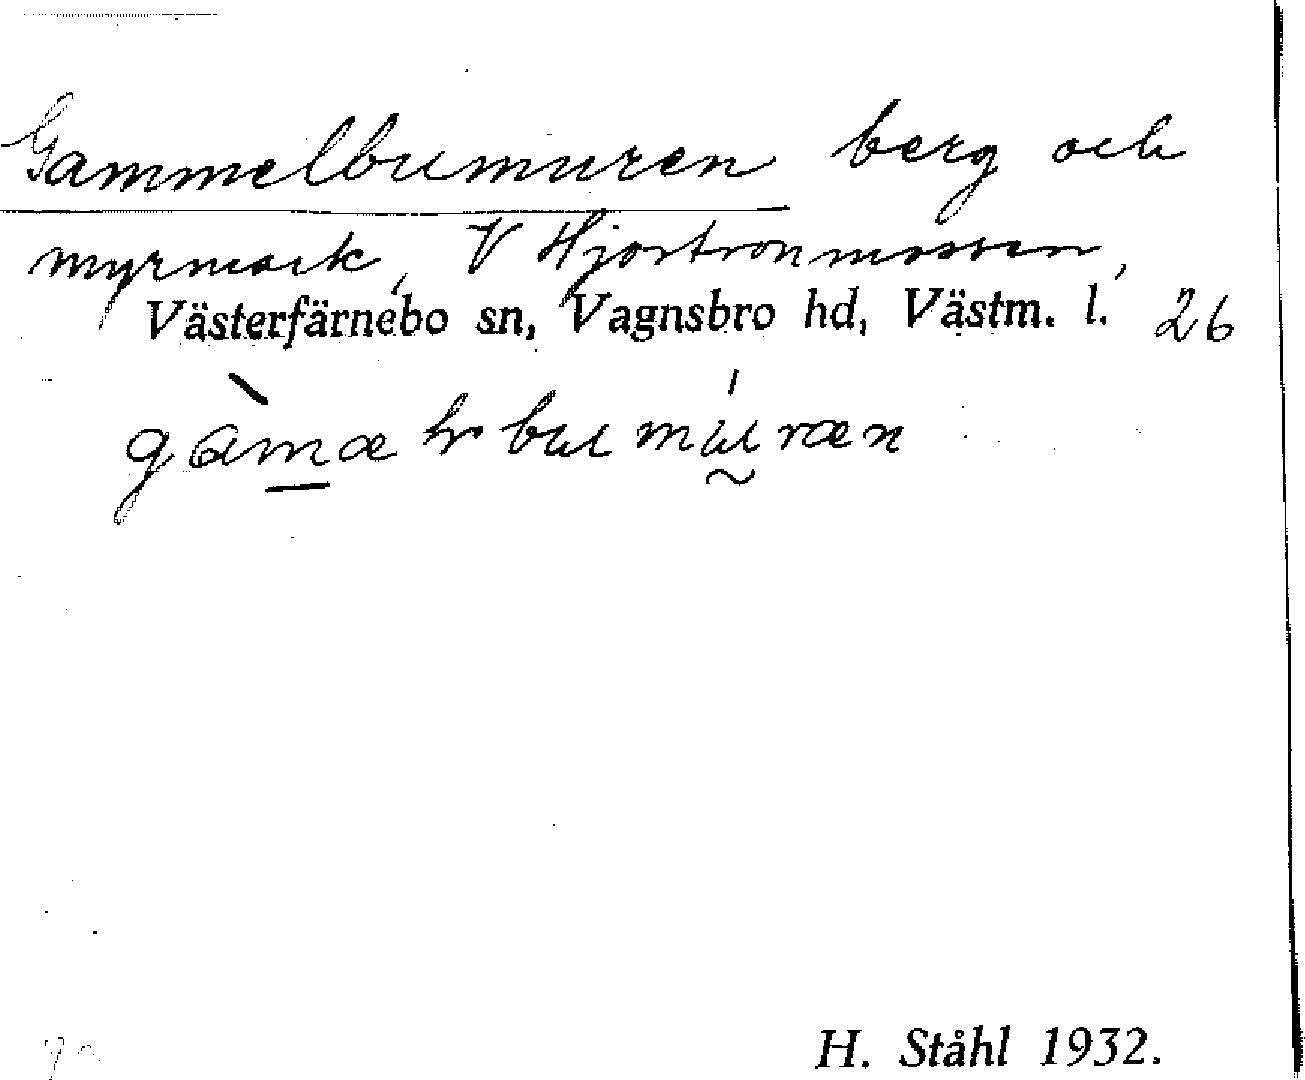 Gammelbumuren berg och
myrmark, V Hjortronmossen,
Västerfärnebo sn, Vagnsbro hd, Västm. l. 26
H. Ståhl 1932.